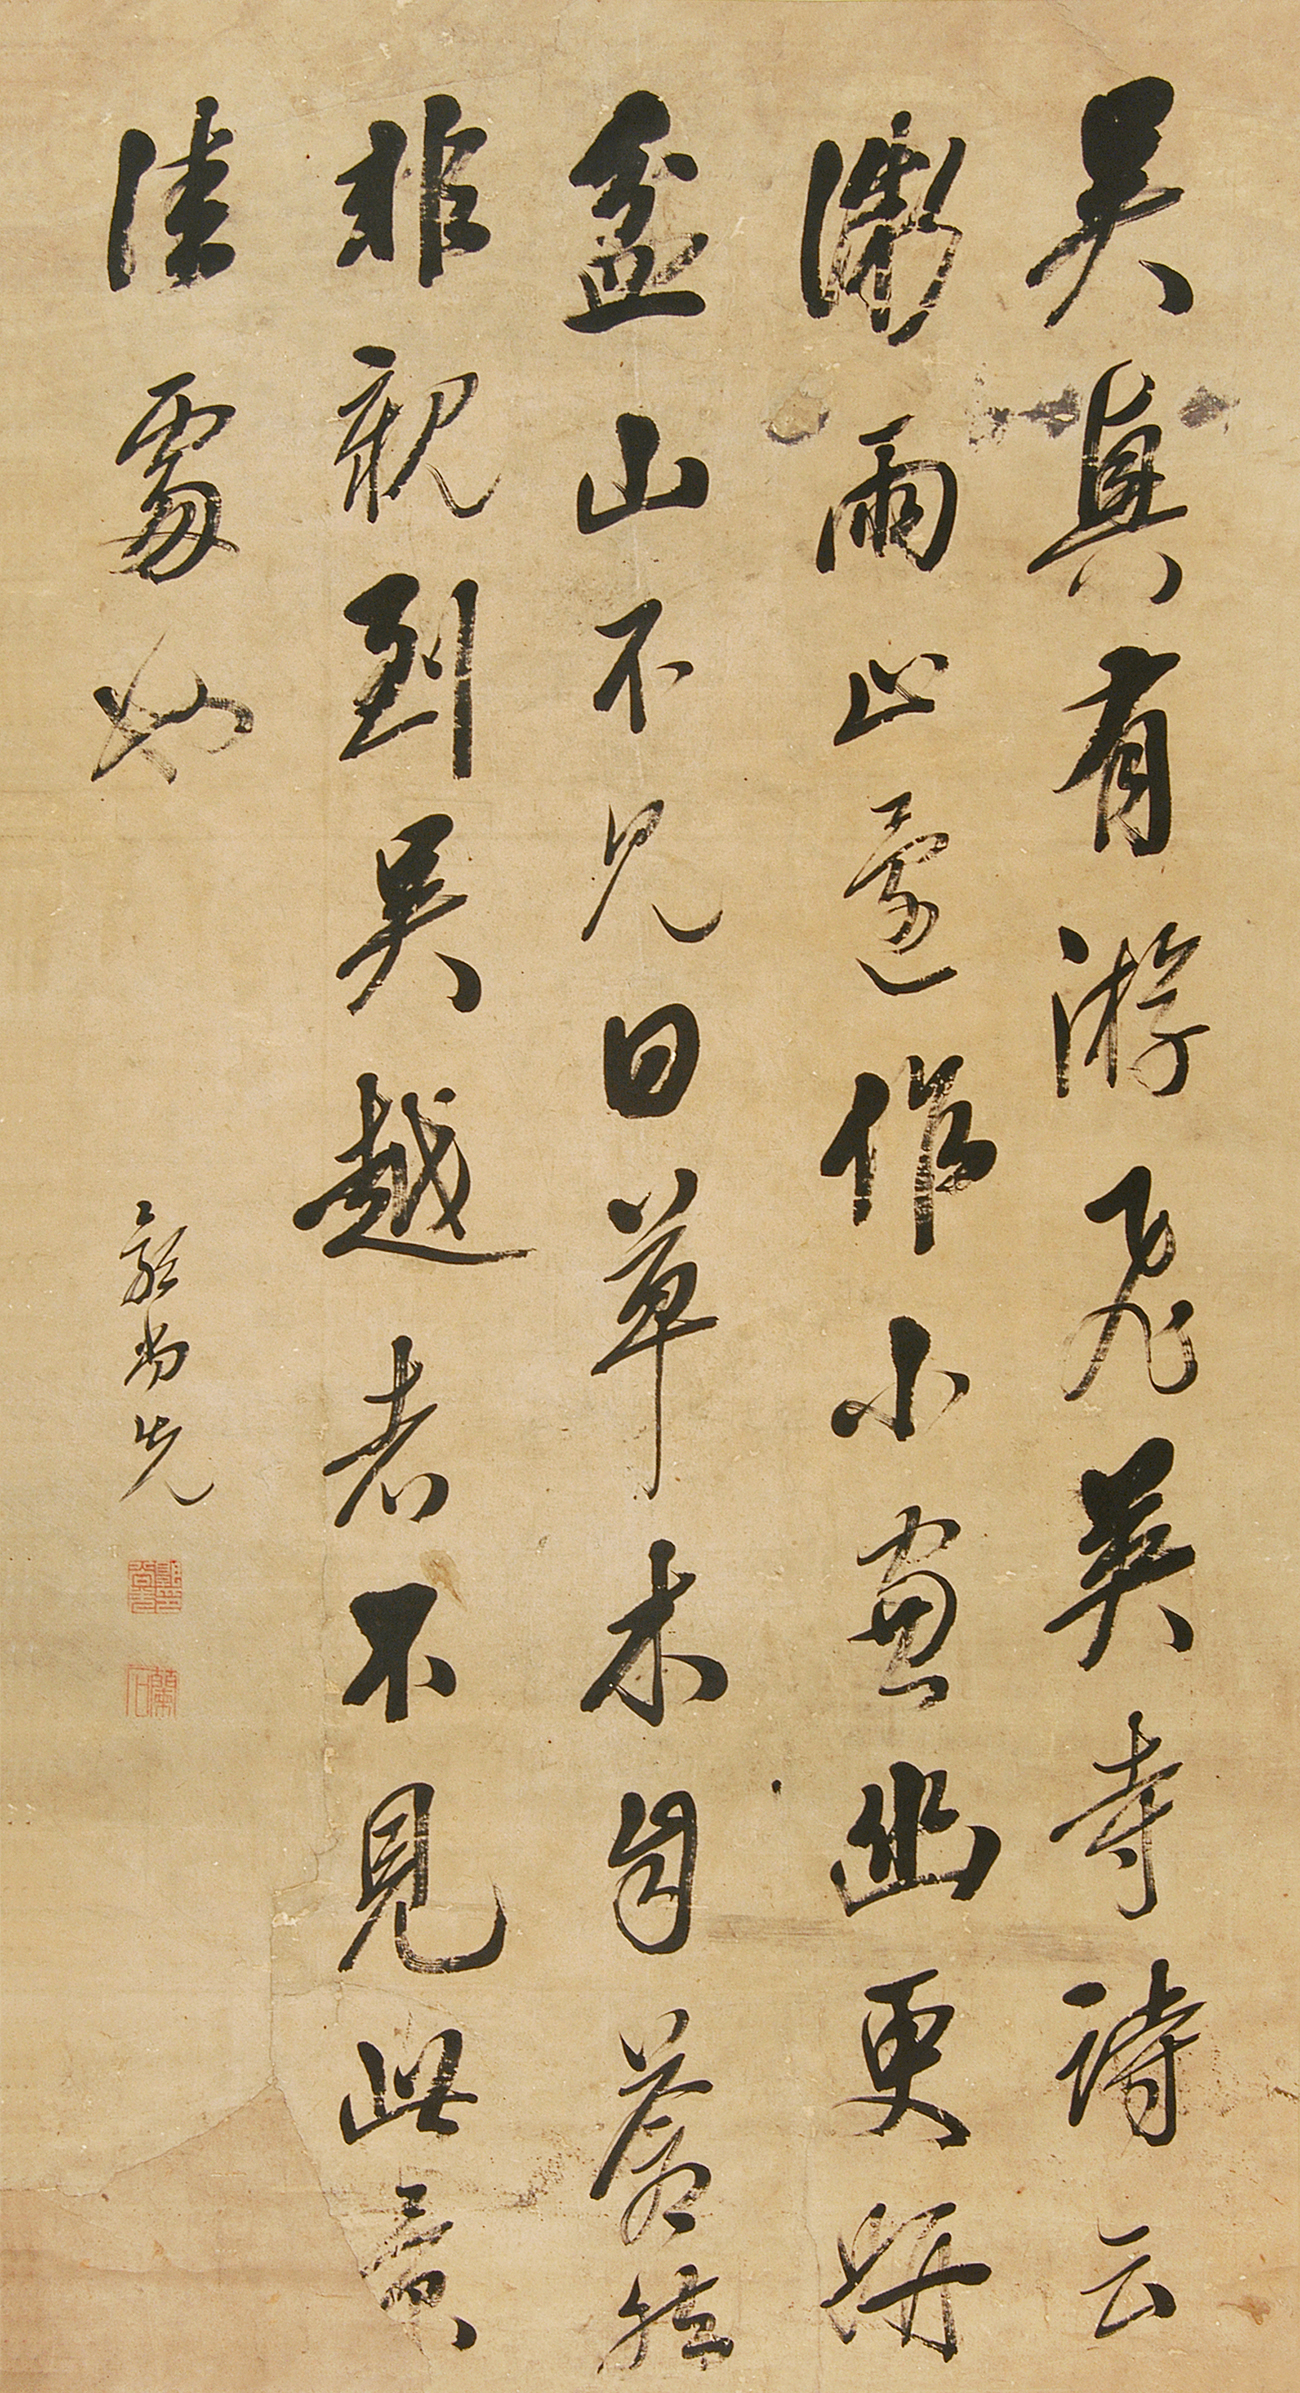 吳興有游飛英寺詩云
微雨止還作小窗幽更妍
盆山不見日草木自蒼然
非親到吳越者不見此景
佳處也
郭尚先
蘭石